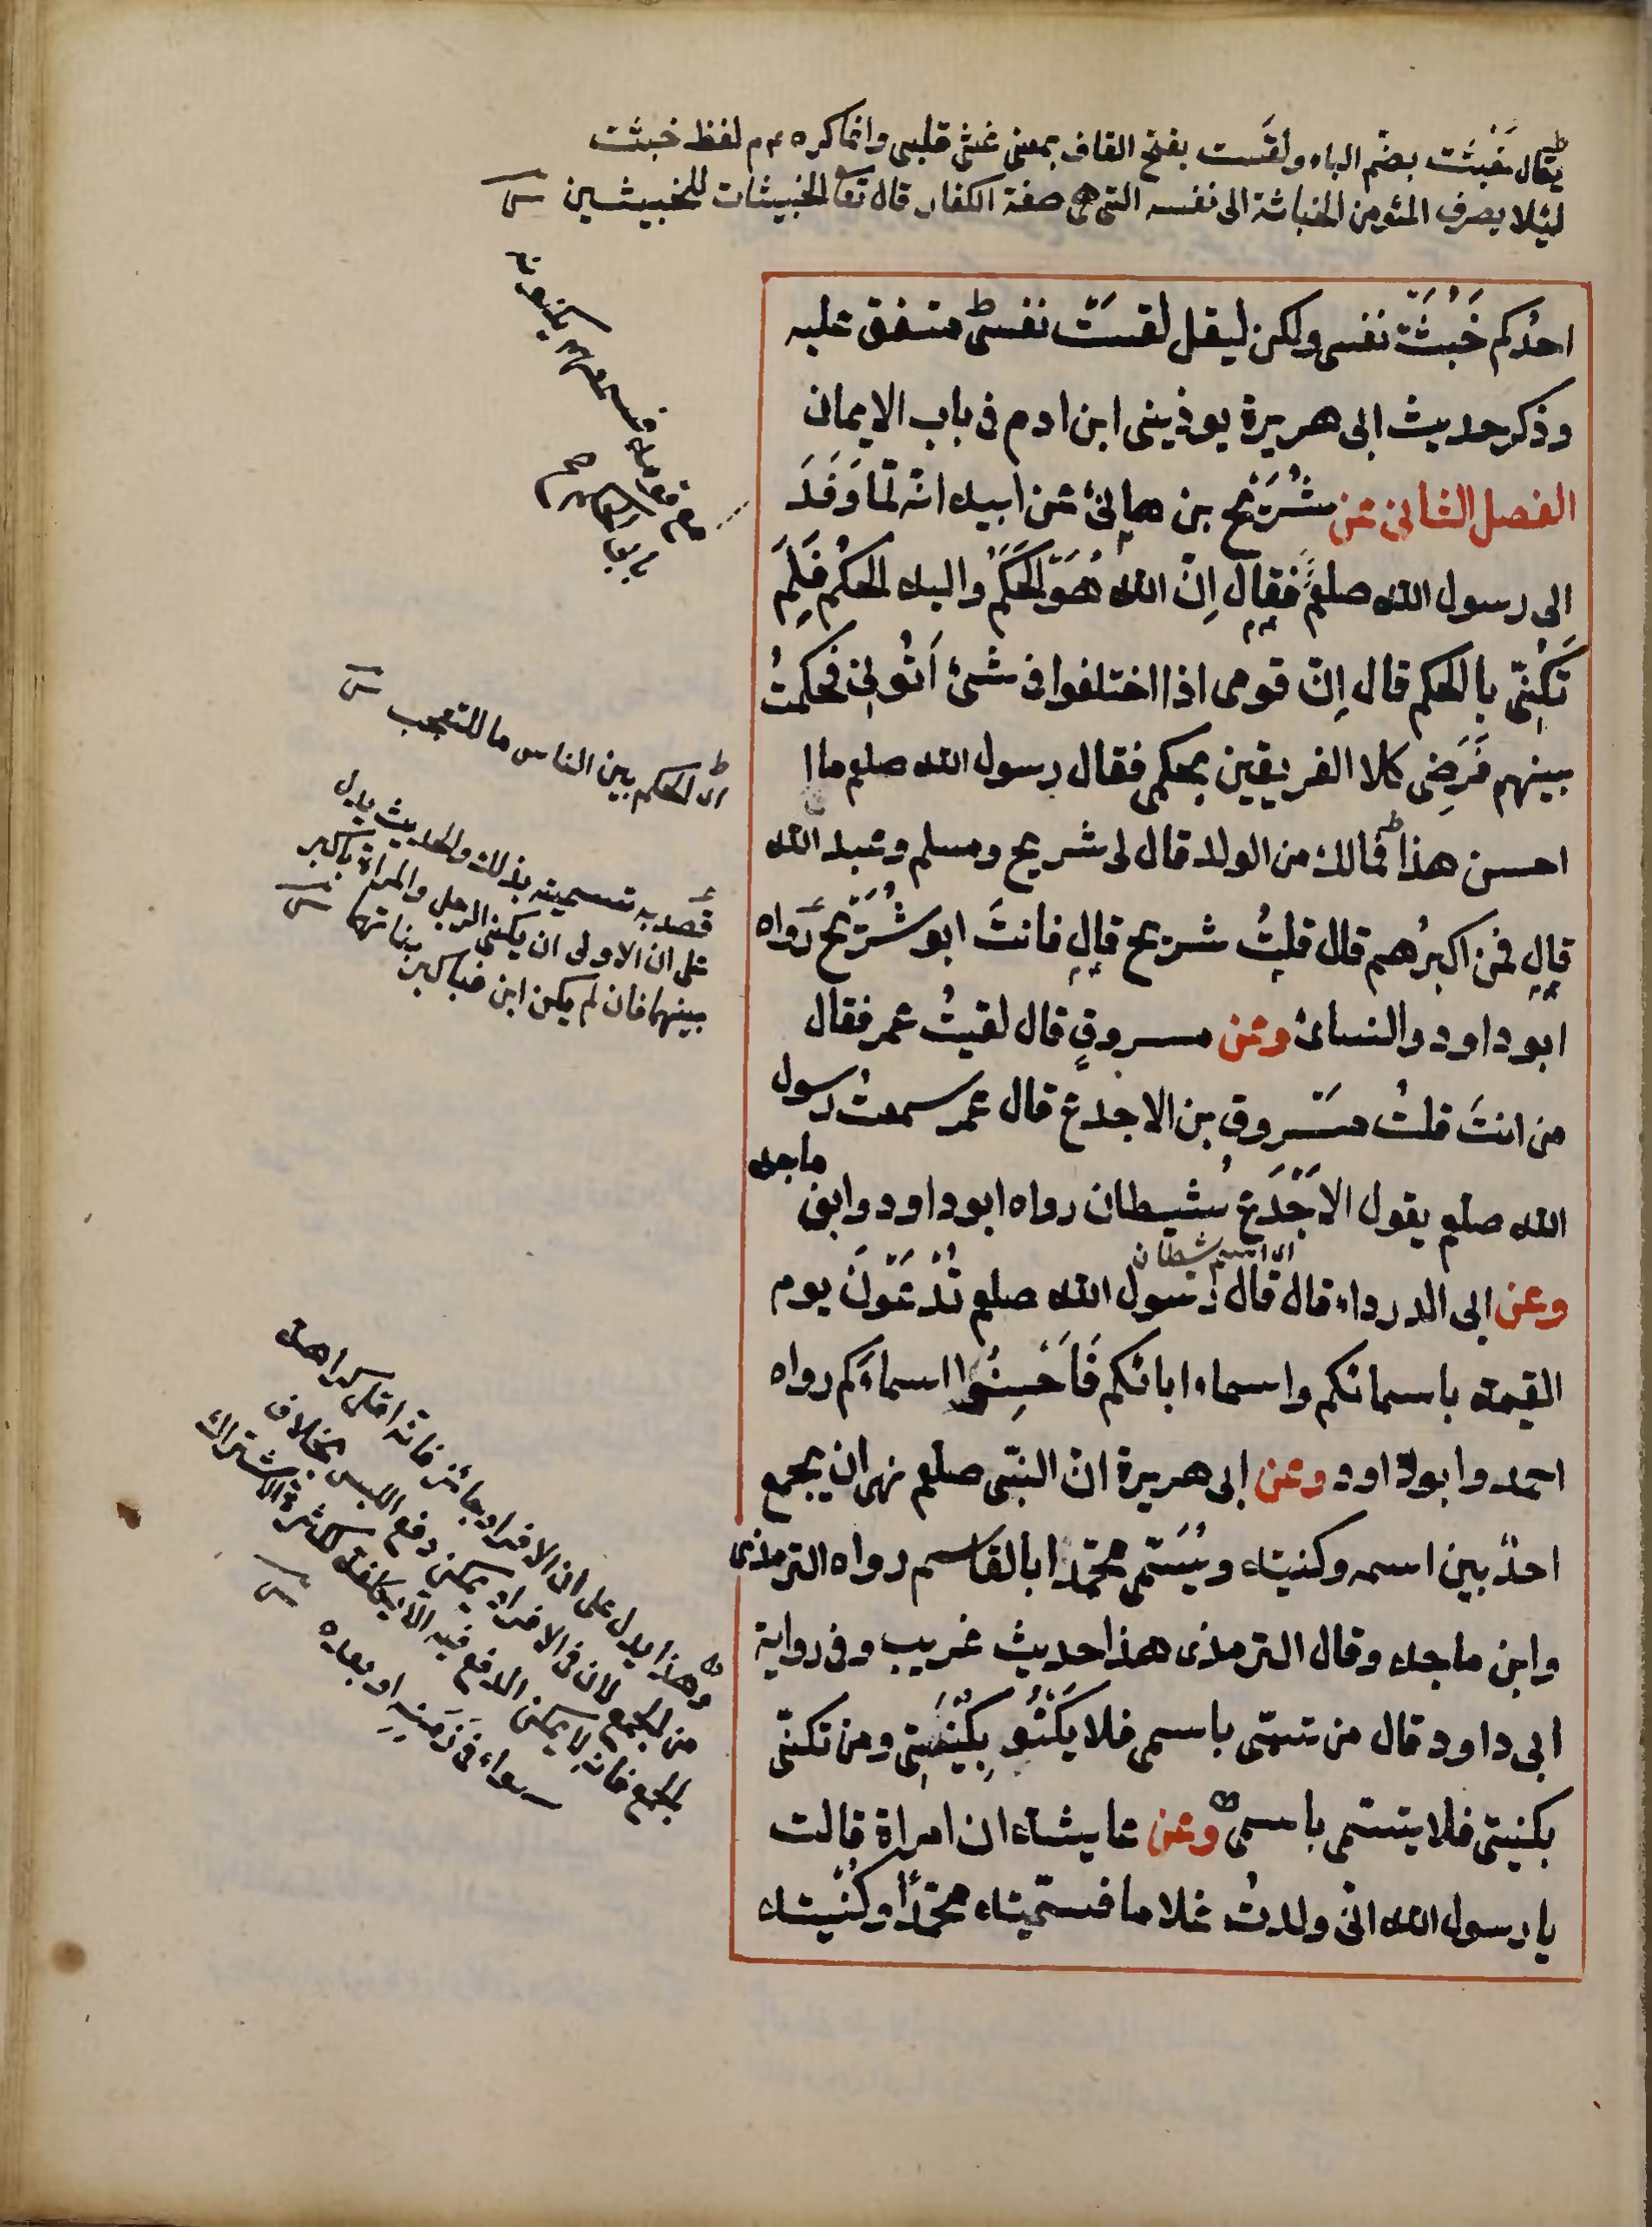 يقال خبثت بضم الباء ولقست بفتح القاف بمعنى غثى قلبي وانما كره عم لفظ خبثت
لئلا يصرف المؤمن الخباثة الى نفسه التى هى صفة الكفار قال تعا الخبيثات للخبيثين
احدُكم خَبُثَتْ نفسى ولكن ليقل لقسَتْ نفسى متفق عليه
وذكر حديث ابى هريرة يوذينى ابن ادم فى باب الايمان
الفصل الثانى عن شُرَيْح بن هانئ عن ابيه انه لمّا وَفَدَ
الى رسول الله صلعم فقال اِنّ الله هُوَ الحَكَمُ واليه الحكمُ فَلِمَ
تُكَنّى بالحكم قال اِنّ قومى اذا اختلفوا فى شئ اَتُونِى فحكمتُ
بينهم فَرَضِى كلا الفريقين بحكمى فقال رسول الله صلعم ما
احسن هذا فمالك من الولد قال لى شريح ومسلم وعبد الله
قال فمن اكبرُهم قال قلتُ شريح قال فانتَ ابو شُرَيْح رَواه
ابو داود والنسائ وعن مسروقٍ قال لقيتُ عمر فقال
من انتَ قلتُ مَسْروق بن الاجدع قال عمر سمعتُ رسول
الله صلعم يقول الاَجْدَع شيطان رواه ابو داود وابن ماجه
اى اسم شيطان
وعن ابى الدرداء قال قال رسول الله صلعم تُدْعَوْنَ يوم
القيمة باسمائكم واسماء ابائكم فَاَحْسِنُوا اسماءَكم رواه
احمد وابو داود وعن ابى هريرة انّ النبّى صلعم نهى ان يجمع
احدٌ بين اسمه وكنيته ويُسَمّى محمّدًا ابا القاسم رواه الترمذى
وابن ماجه وقال الترمذى هذا حديث غريب وفى رواية
ابى داود قال من تسمّى باسمى فلا يَكْتَنِ بِكُنْيَتِى ومن تكنّى
بكنيتى فلا يتسمى باسمى وعن عايشة ان امراة قالت
يا رسول الله انّى ولدتُ غلاما فسمّيته محمّدًا وكَنّيته
اى الحكم بين الناس ما للتعجب
قصد به تسميته بذلك والحديث يدل
على ان الاولى ان يكنى الرجل والمراة باكبر
بينهما فان لم يكن ابن فباكبر بناتهما
وهذا يدل على ان الافراد جائز فانه اقل كراهة
من الجمع لان فى الافراد يمكن دفع اللبس بخلاف
الجمع فانه لا يمكن الدفع فيه الا بكلفة لكثرة الاشتراك
سواء فى زَمَنِهِ او بعده